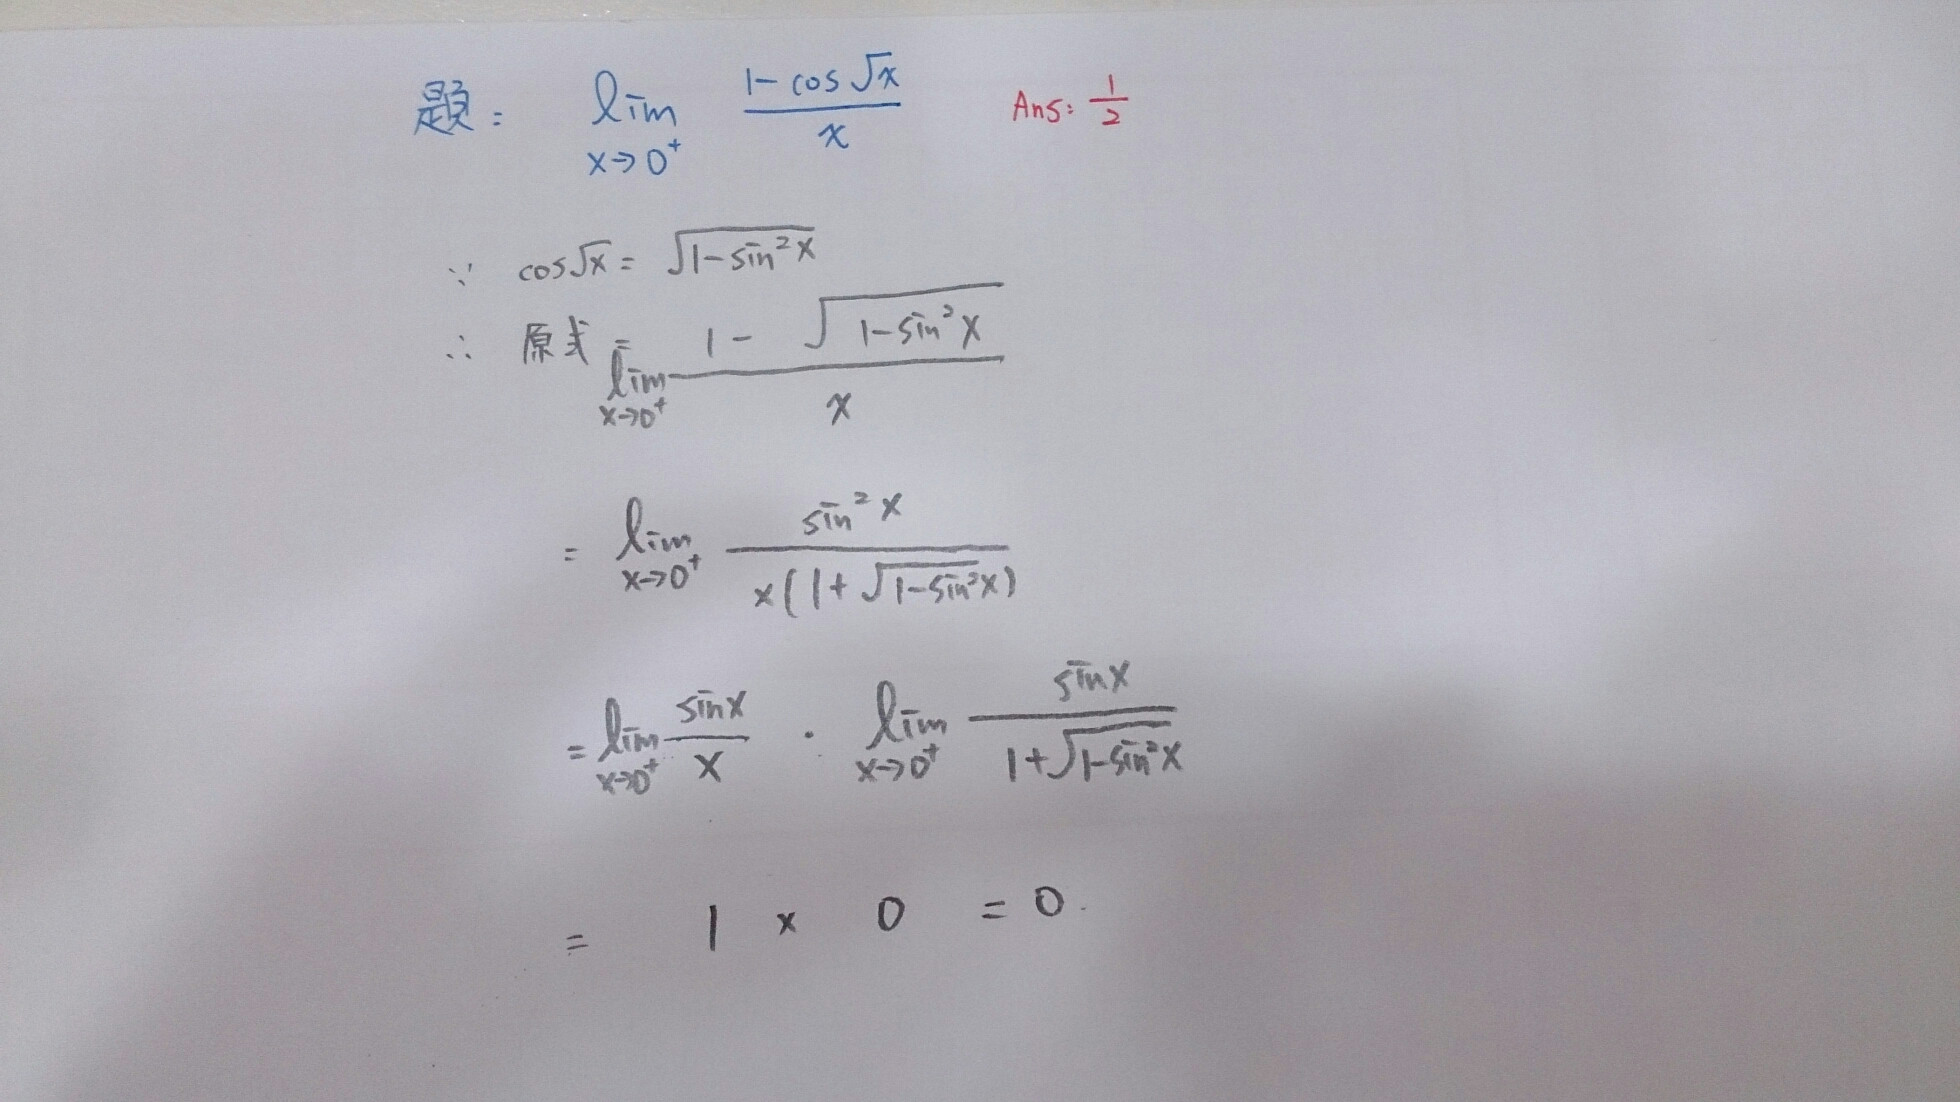 题: lim x→0⁺ (1-cos√x)/x Ans: 1/2
∵ cos√x = √(1-sin²x)
∴ 原式 = lim x→0⁺ (1-√(1-sin²x))/x
= lim x→0⁺ sin²x/(x(1+√(1-sin²x)))
= lim x→0⁺ sinx/x · lim x→0⁺ sinx/(1+√(1-sin²x))
= 1 × 0 = 0.